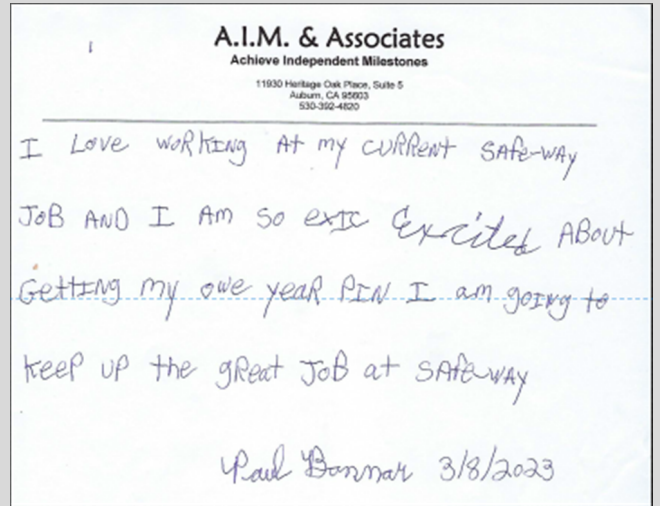 A.I.M. & Associates
Achieve Independent Milestones
11930 Heritage Oak Place, Suite 5
Auburn, CA 95603
530-392-4820
I Love WORKING At my CURRENT SAfe-WAY
JOB AND I AM SO exIC Excited ABOUT
GettING my owe yeaR PIN I am goING to
keeP UP the gReat JOB at SAfe-WAY
Paul Bonnar 3/8/2023